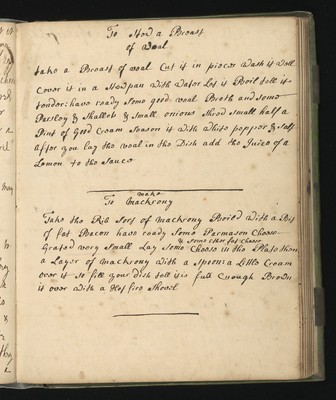 To Stw a Breast
of Veal
take a Breast of veal Cut it in pieces Wash it Well
Cover it in a Stwpan With Water Let it Boil till it
tender: have ready Some good veal Broth and Some
Parsley & Shallots & Small onions Shred Small half a
Pint of Good Cream Season it With White pepper & Salt
after you lay the veal in the Dish add the Juice of a
Lemon to the Sauce
make
To Mackrony
Take the Rib Sort of mackrony Boiled With a Bit
of fat Bacon have ready Some Parmason Cheese
& Some other fat Cheese
Grated very Small Lay Some Cheese in the Plate then
a Layer of mackrony With a Spoon a Little Cream
over it So fill your Dish till it is full Enough Brown
it over With a Hot fire Shovel